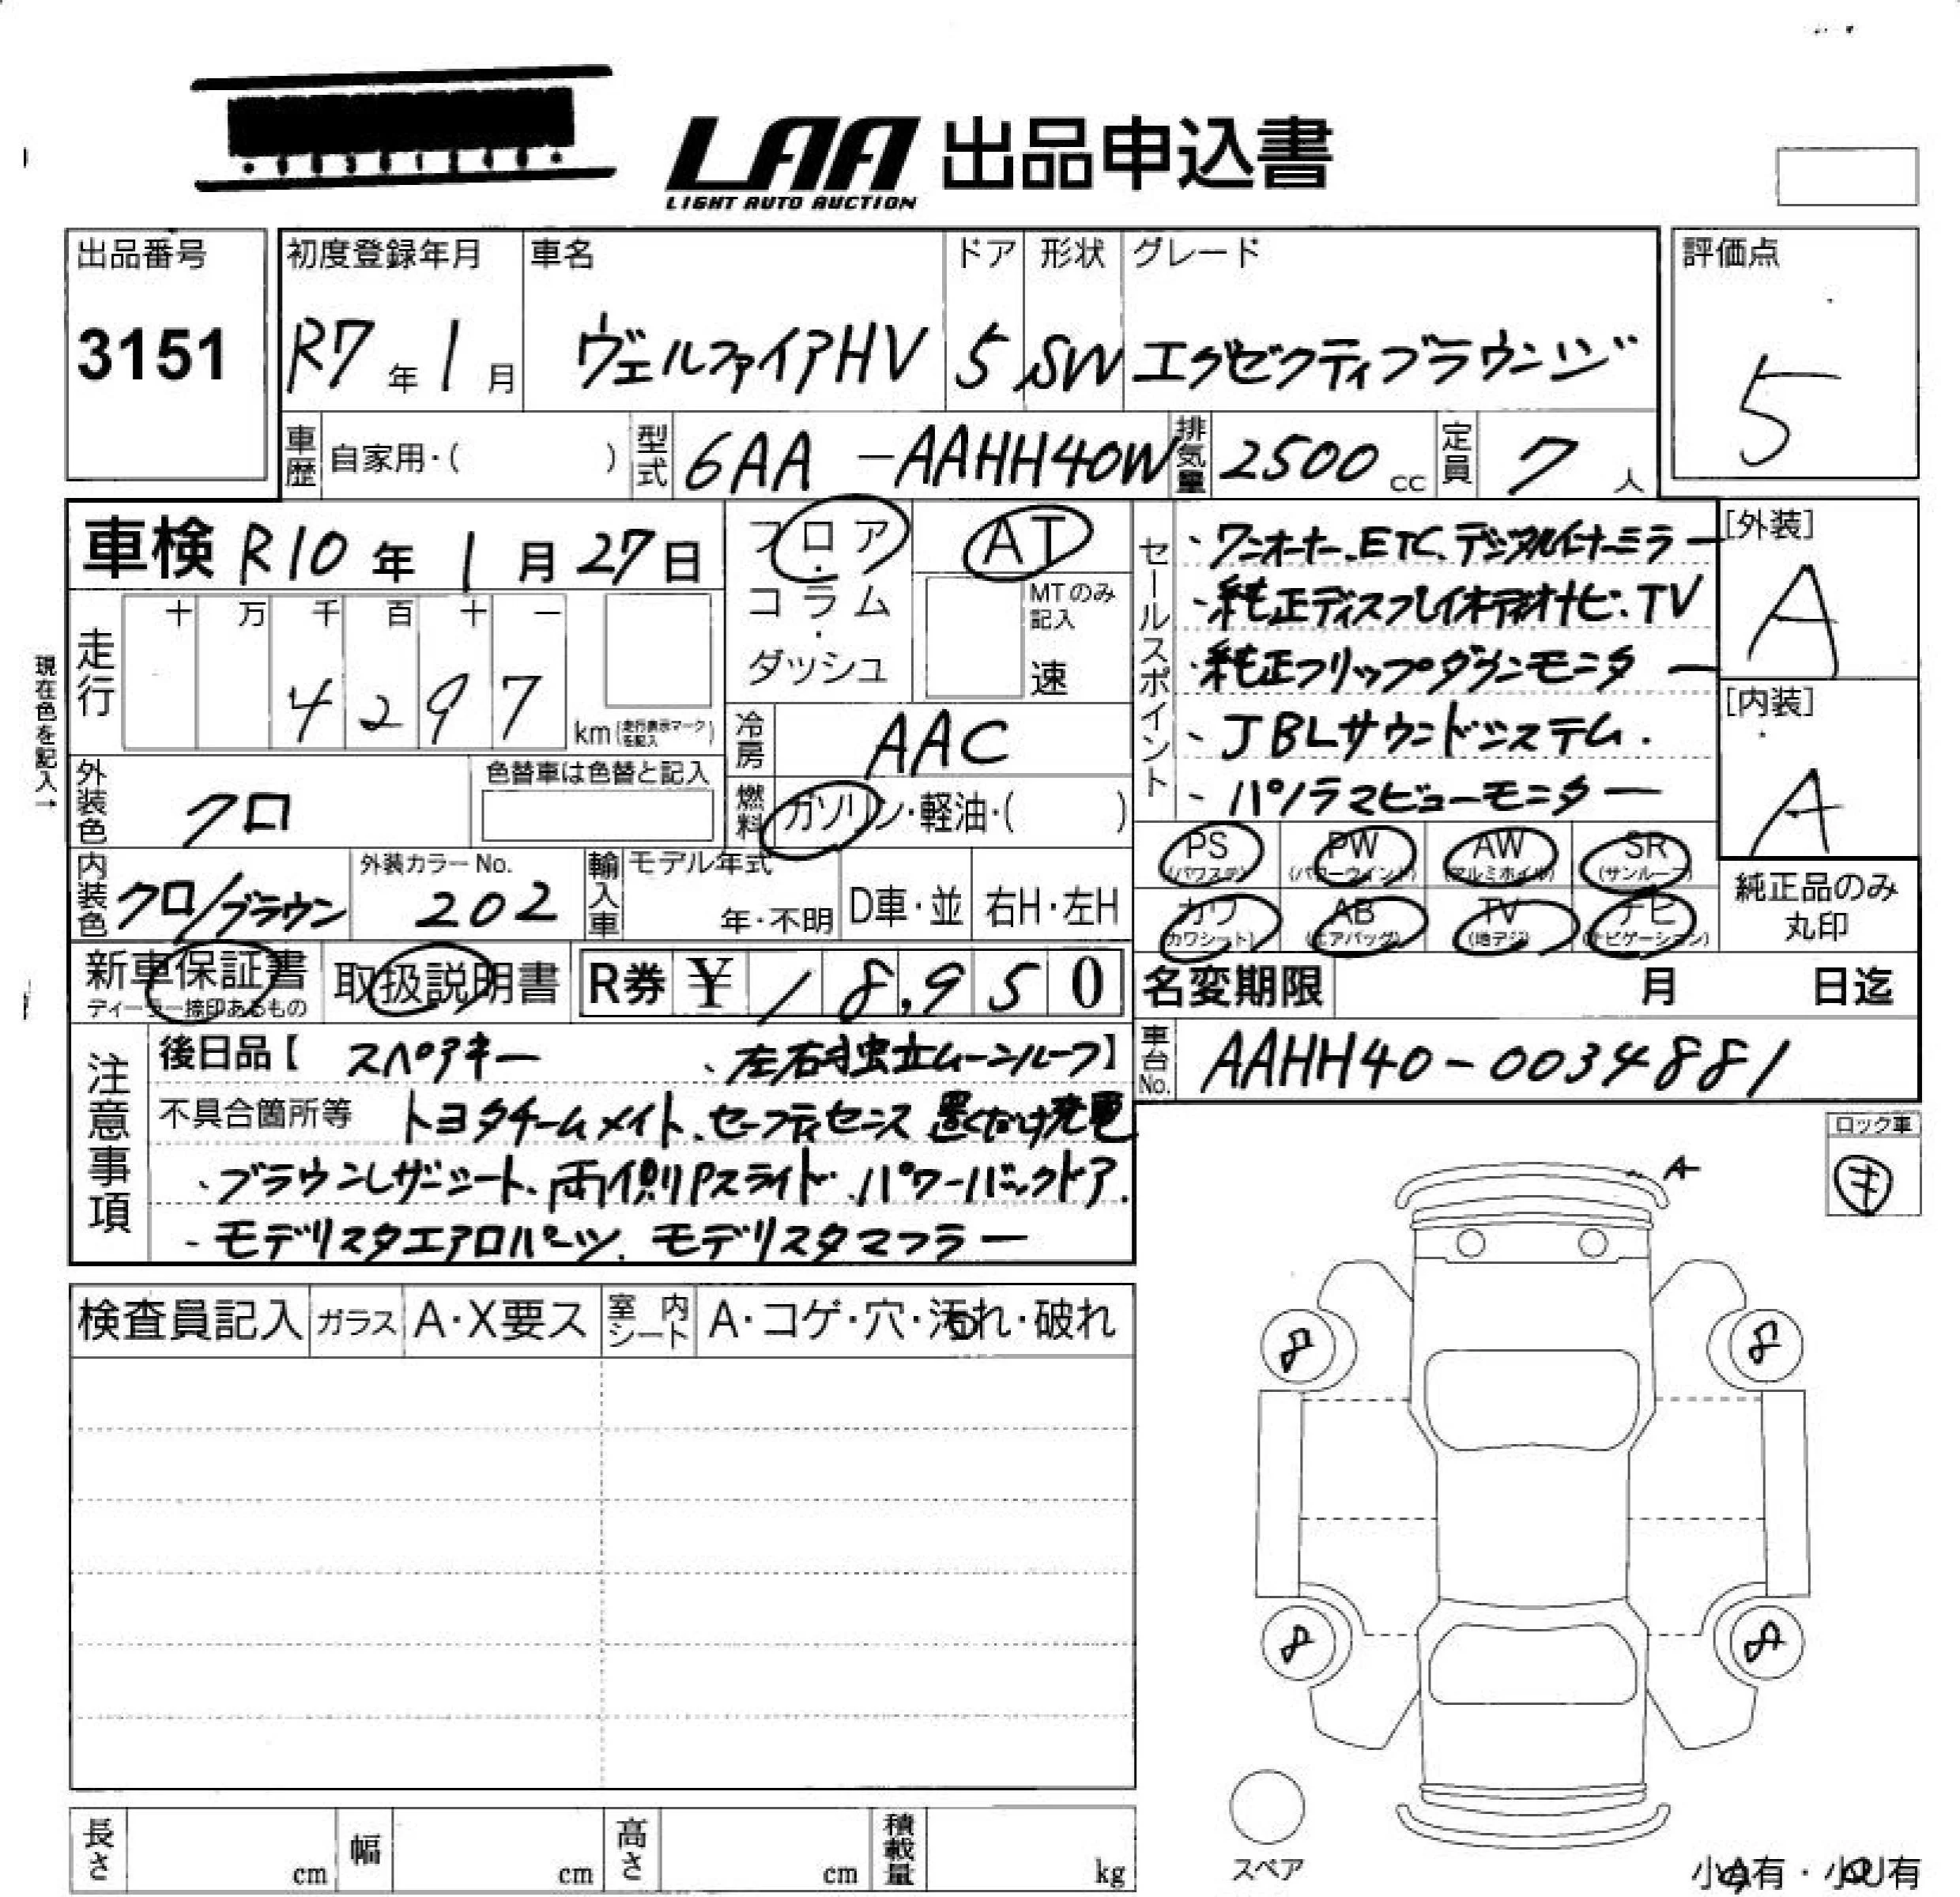 LAA 出品申込書
LIGHT AUTO AUCTION
出品番号 初度登録年月 車名 ドア 形状 グレード 評価点
3151 R7年1月 ヴェルファイアHV 5 SW エグゼクティブラウンジ 5
車歴 自家用・( ) 型式 6AA -AAHH40W 排気量 2500cc 定員 7人
車検 R10年1月27日
フロア・コラム・ダッシュ
AT
MTのみ記入
速
現在色を記入→
走行 十 万 千 百 十 一
4297 km(走行表示マークを記入)
冷房 AAC
外装色 クロ 色替車は色替と記入
燃料 ガソリン・軽油・( )
内装色 クロ/ブラウン 外装カラーNo. 202 輸入車 モデル年式 年・不明 D車・並 右H・左H
セールスポイント
、ワンオーナー、ETC、デジタルインナーミラー
、純正ディスプレイオーディオナビ、TV
、純正フリップダウンモニター
、JBLサウンドシステム.
、パノラマビューモニター
[外装]
A
[内装]
A
PS (パワステ) PW (パワーウインド) AW (アルミホイル) SR (サンルーフ)
カワ (カワシート) AB (エアバッグ) TV (地デジ) ナビ (ナビゲーション)
純正品のみ
丸印
新車保証書 取扱説明書 R券 ¥ 18,950
ディーラー捺印あるもの
名変期限 月 日迄
車台No. AAHH40-0034881
注意事項
後日品【 スペアキー 、左右独立ムーンルーフ】
不具合箇所等 トヨタチームメイト、セーフティセンス 置くだけ充電
、ブラウンレザーシート、両側Pスライド、パワーバックドア.
、モデリスタエアロパーツ、モデリスタマフラー
ロック車
キ
A
検査員記入 ガラス A・X要ス 室内シート A・コゲ・穴・汚れ・破れ
8 8
8 8
スペア
長さ cm 幅 cm 高さ cm 積載量 kg
小A有・小U有